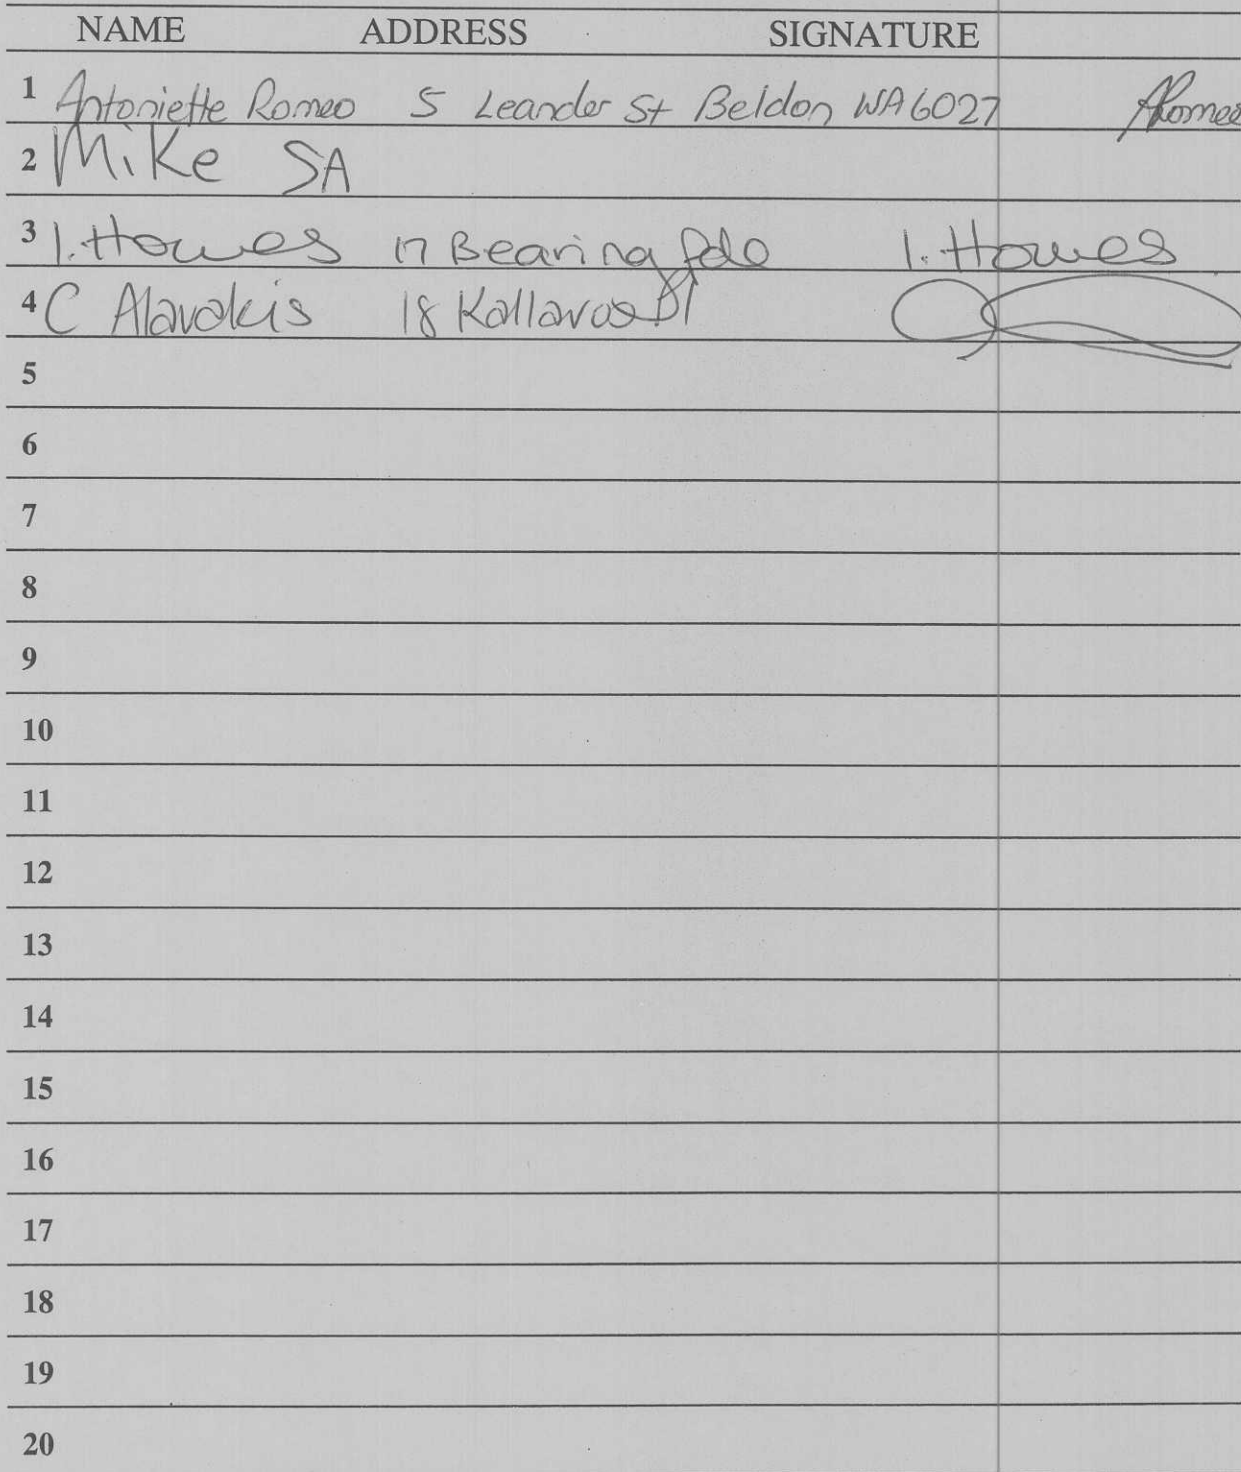 NAME ADDRESS SIGNATURE
1 Antoniette Romeo 5 Leander St Beldon WA 6027 ARomeo
2 Mike SA
3 I. Howes 17 Bearing Pde I. Howes
4 C Alavakis 18 Pl
5
6
7
8
9
10
11
12
13
14
15
16
17
18
19
20